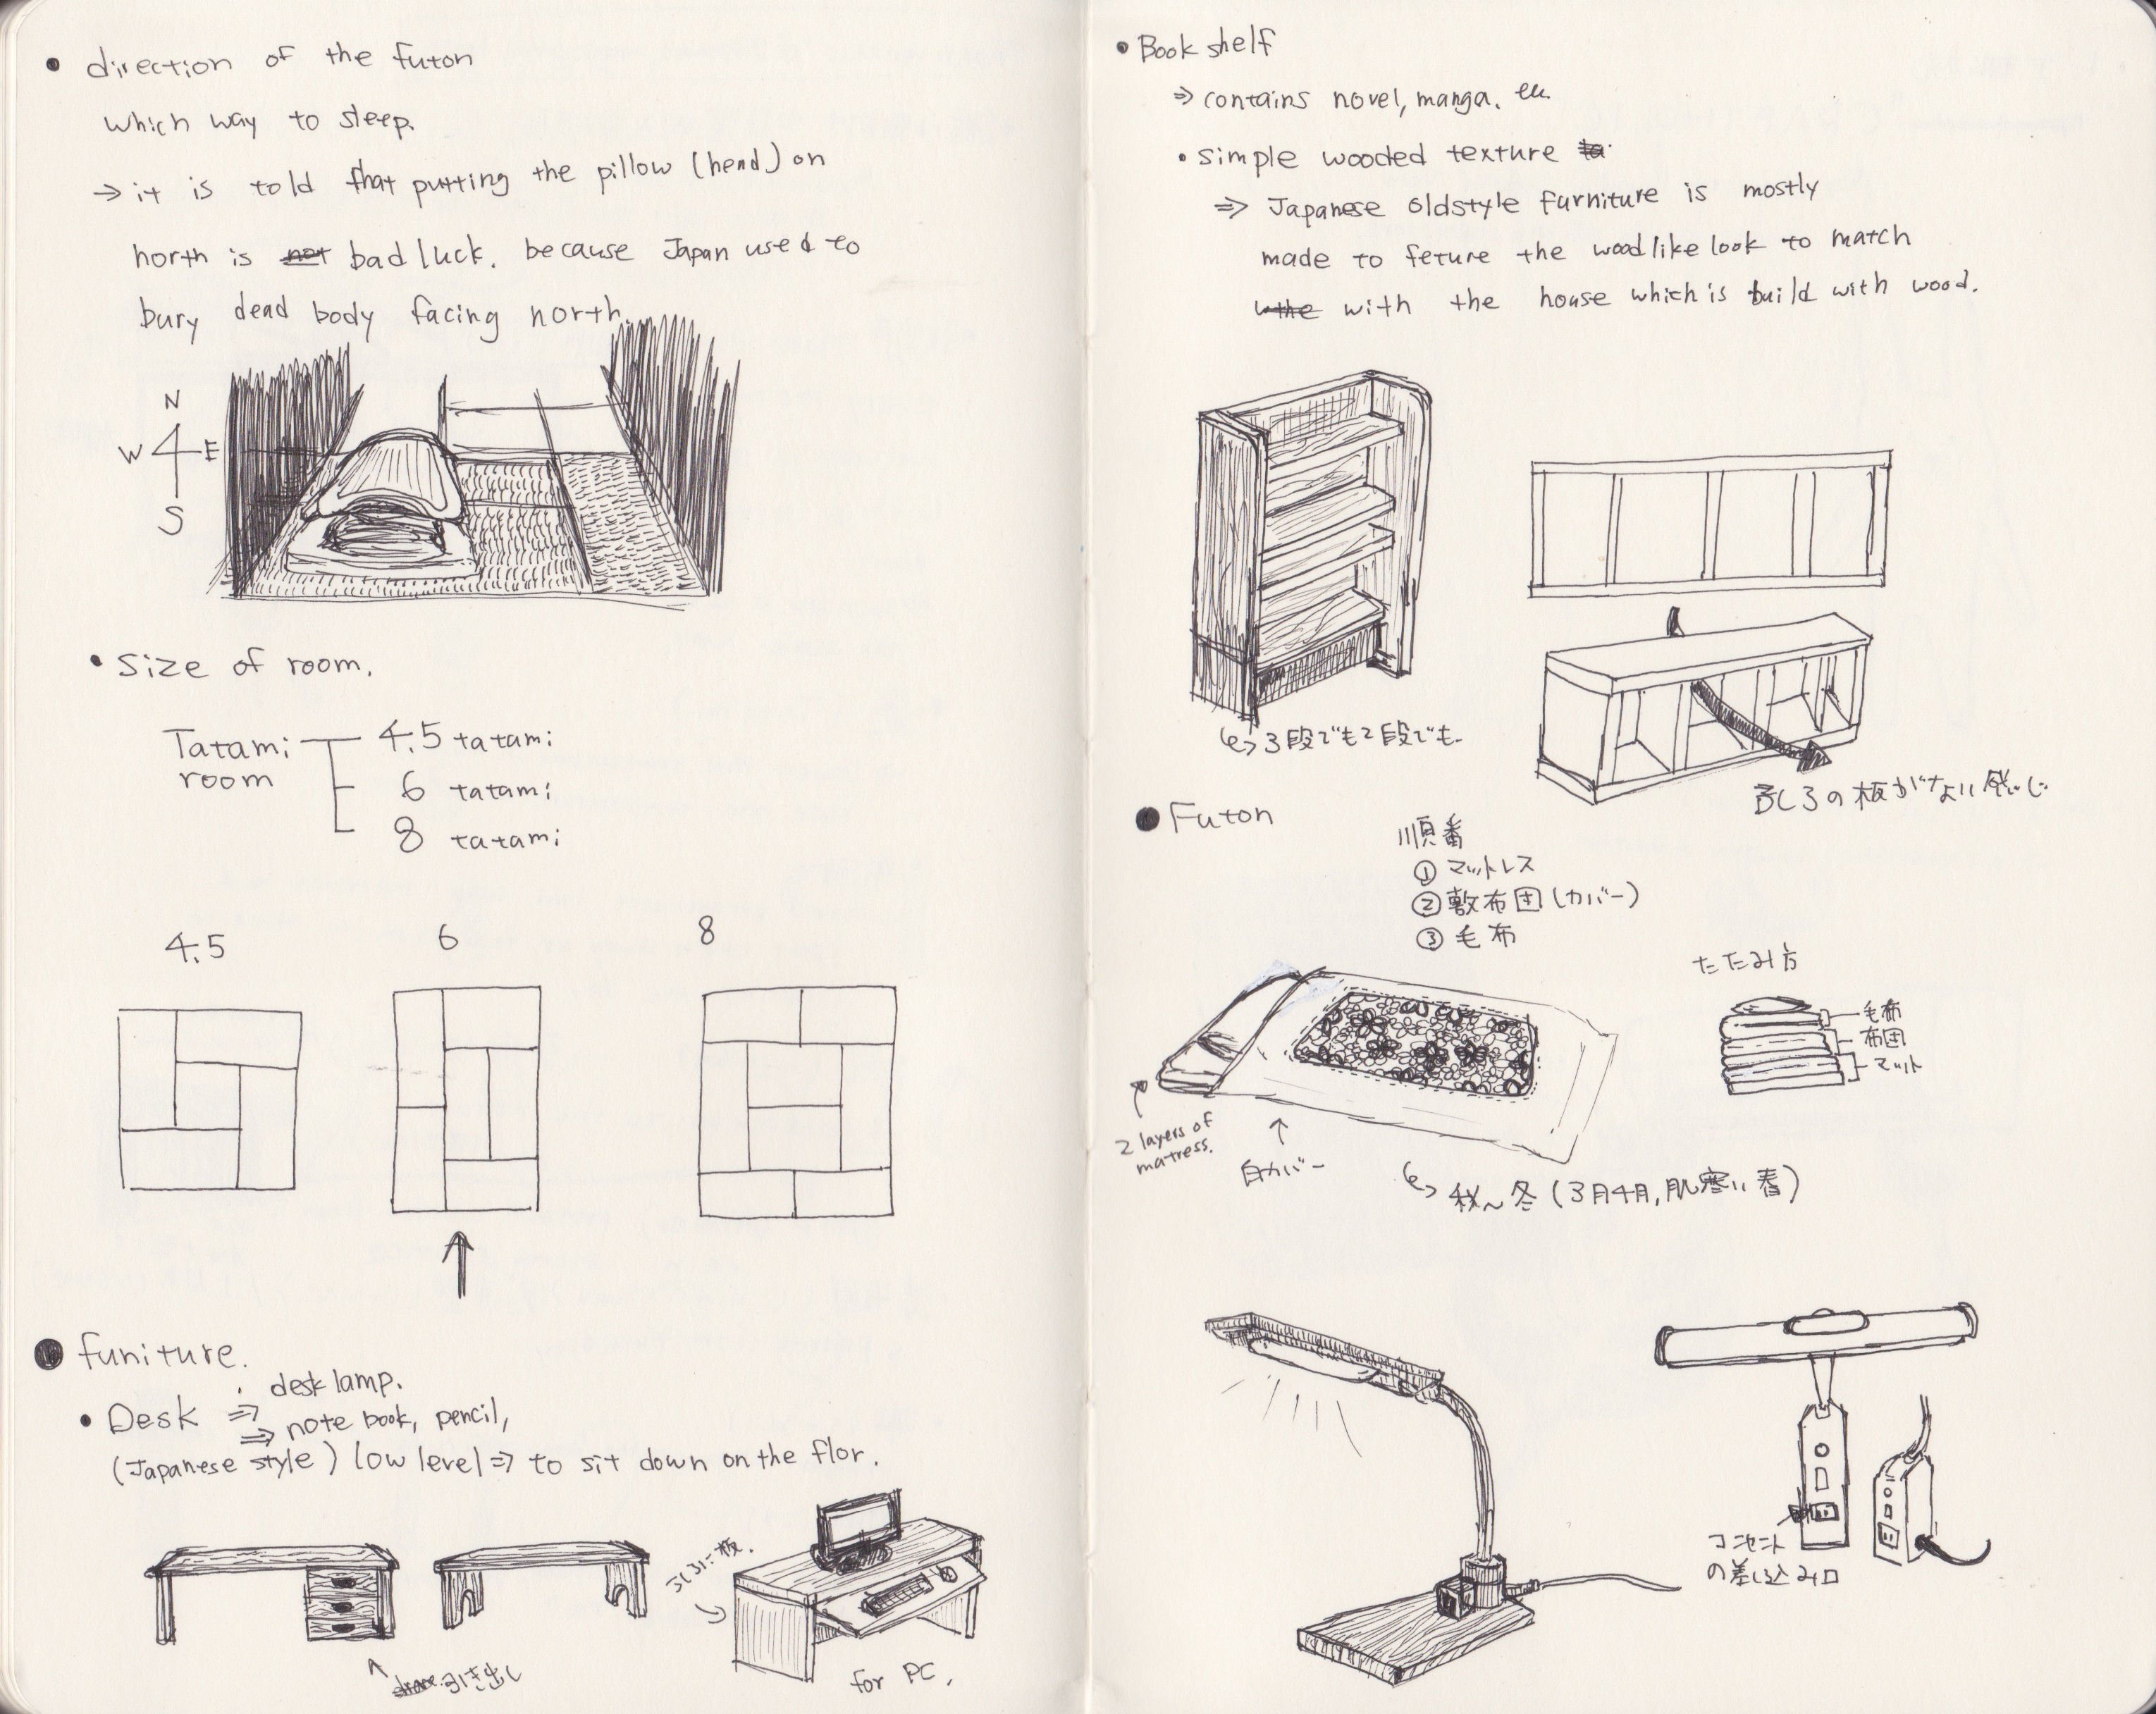 • direction of the futon
which way to sleep.
→ it is told that putting the pillow (head) on
north is not bad luck. because Japan used to
bury dead body facing north.
N
W E
S
• Size of room.
Tatami room
4.5 tatami
6 tatami
8 tatami
4.5 6 8
● funiture.
desk lamp.
• Desk ⇒
⇒ note book, pencil,
(Japanese style) low level ⇒ to sit down on the flor.
引き出し
板.
for PC.
• Book shelf
⇒ contains novel, manga. etc.
• simple wooded texture
⇒ Japanese oldstyle furniture is mostly
made to feture the woodlike look to match
with the house which is build with wood.
3段でも2段でも.
うしろの板がない感じ
● Futon
順番
① マットレス
②敷布団(カバー)
③ 毛布
たたみ方
毛布
布団
マット
2 layers of
matress.
白カバー
秋〜冬(3月4月,肌寒い春)
コンセント
の差し込み口